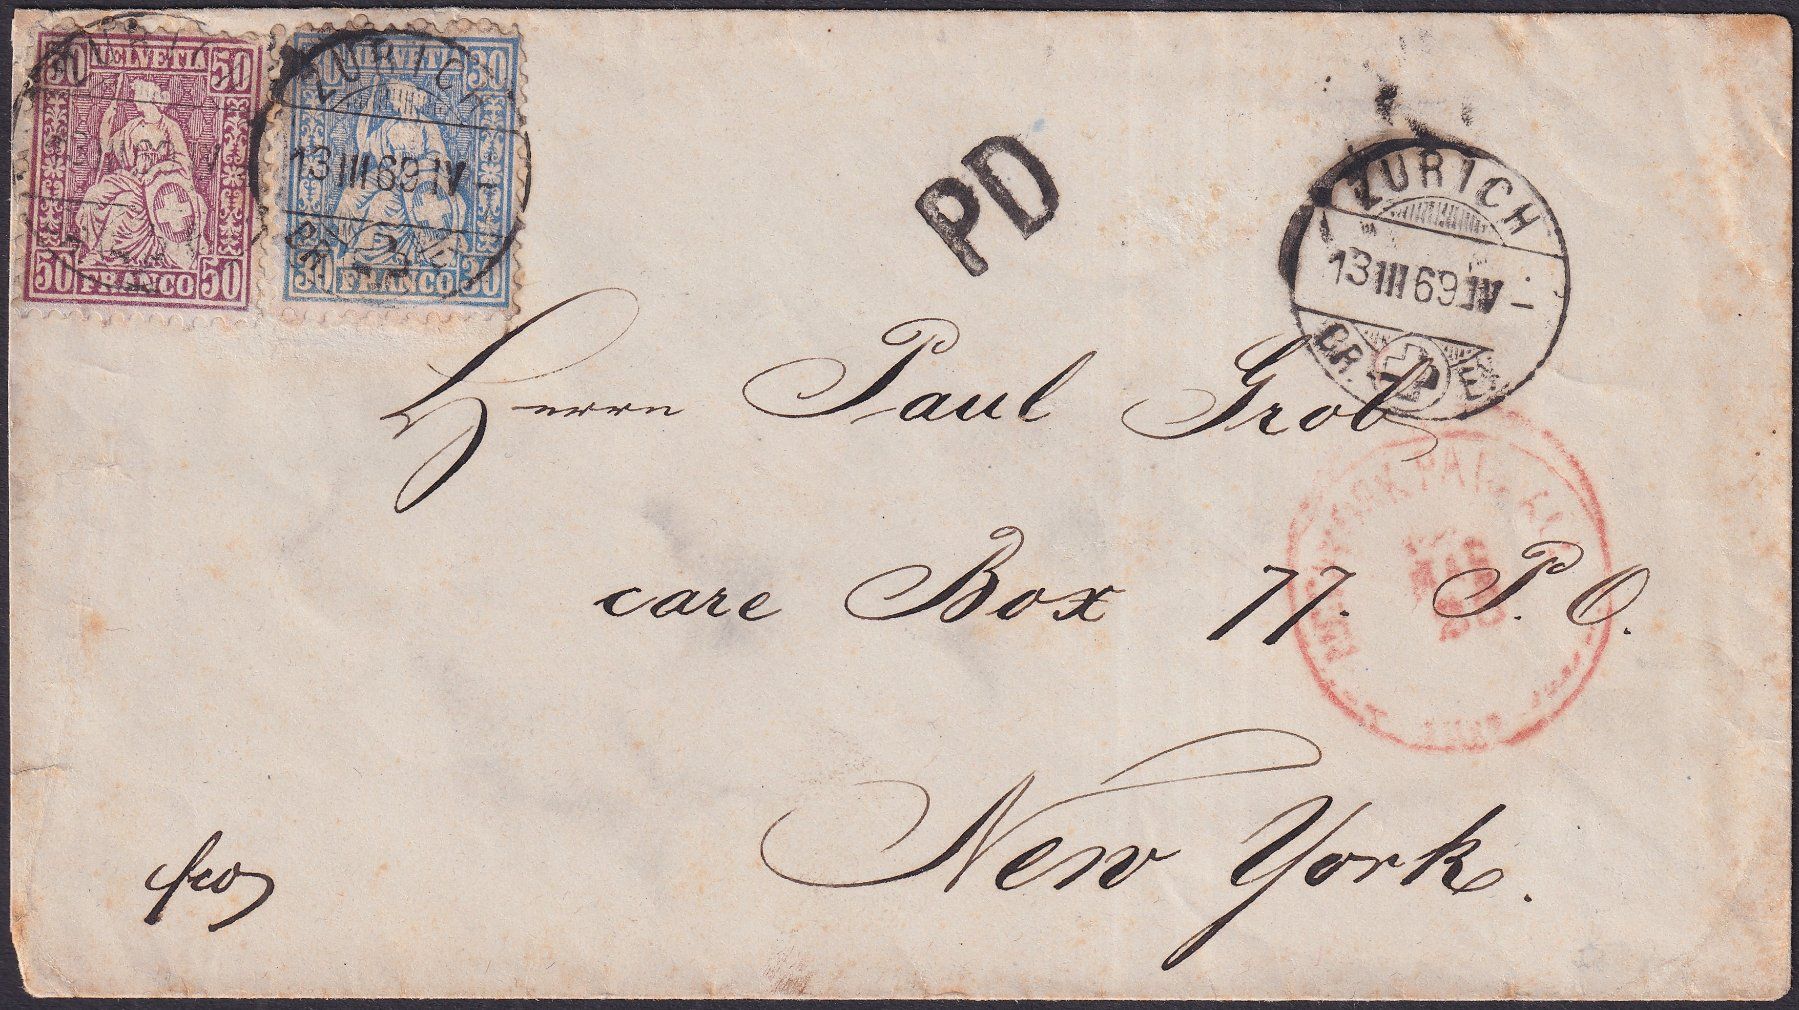 50 HELVETIA 50
50 FRANCO 50
HELVETIA 30
30 FRANCO 30
ZURICH
13 III 69 IV –
PD
ZURICH
13 III 69 IV –
Herrn Paul Grob
care Box 77. P. O.
New York.
fco